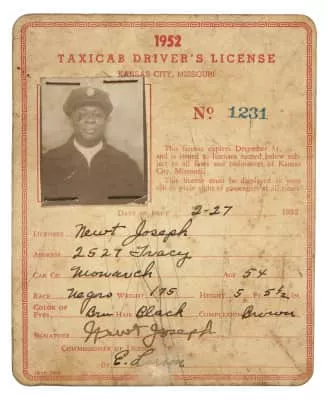 1952
TAXICAB DRIVER'S LICENSE
KANSAS CITY, MISSOURI
No 1231
This license expires December 31,
and is issued to licensee named below sub-
ject to all laws and ordinances of Kansas
City, Missouri.
This license must be displayed in your
cab in plain sight of passenger at all times
DATE OF ISSUE 2-27 1952
LICENSEE Newt Joseph
ADDRESS 2527 Tracy
CAR CO. Monarch AGE 54
RACE Negro WEIGHT 195 HEIGHT 5 Ft 5½ IN.
COLOR OF
EYES Brn HAIR Black COMPLEXION Brown
SIGNATURE Newt Joseph
COMMISSIONER OF
BY E.